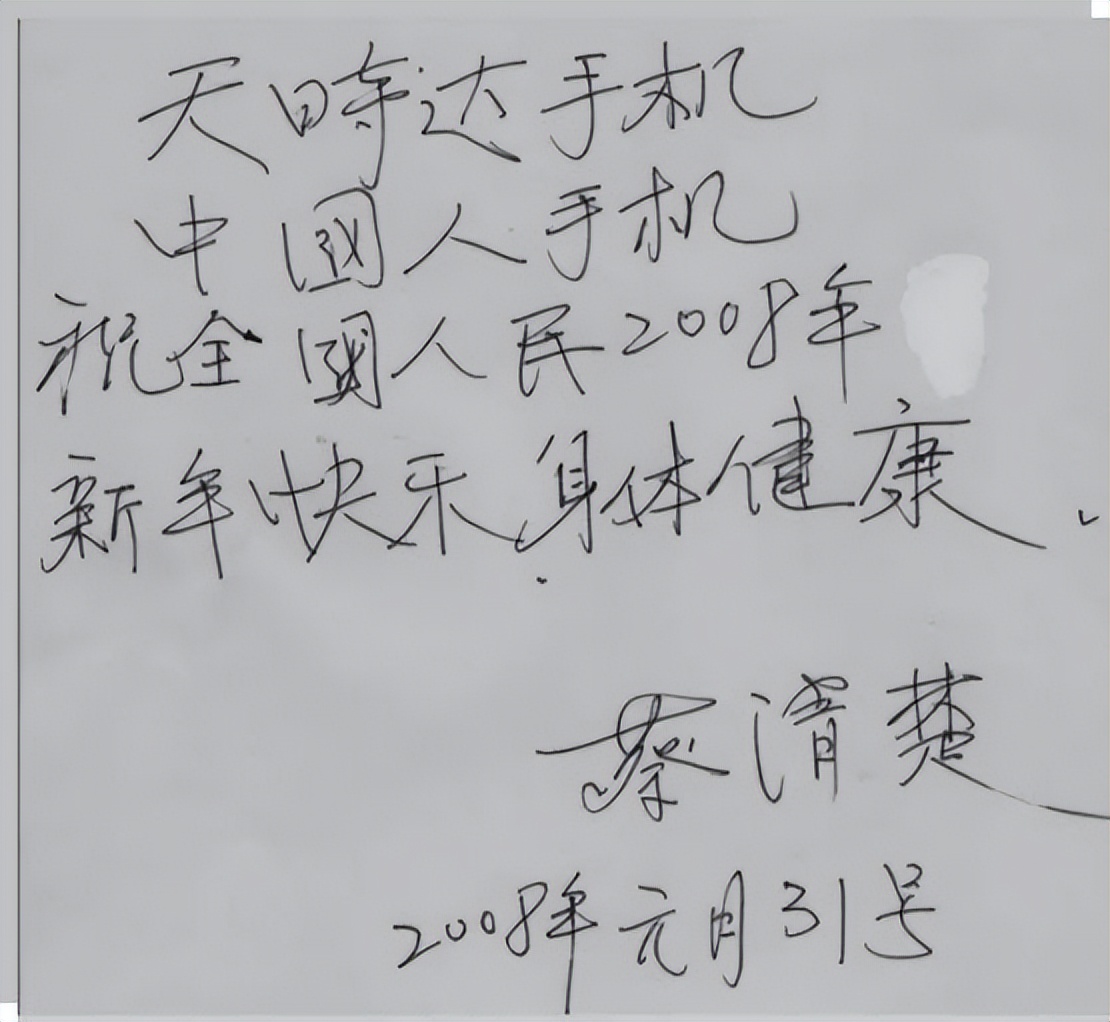 天時达手机
中國人手机
祝全國人民2008年
新年快乐,身体健康.
蔡清楚
2008年元月31号